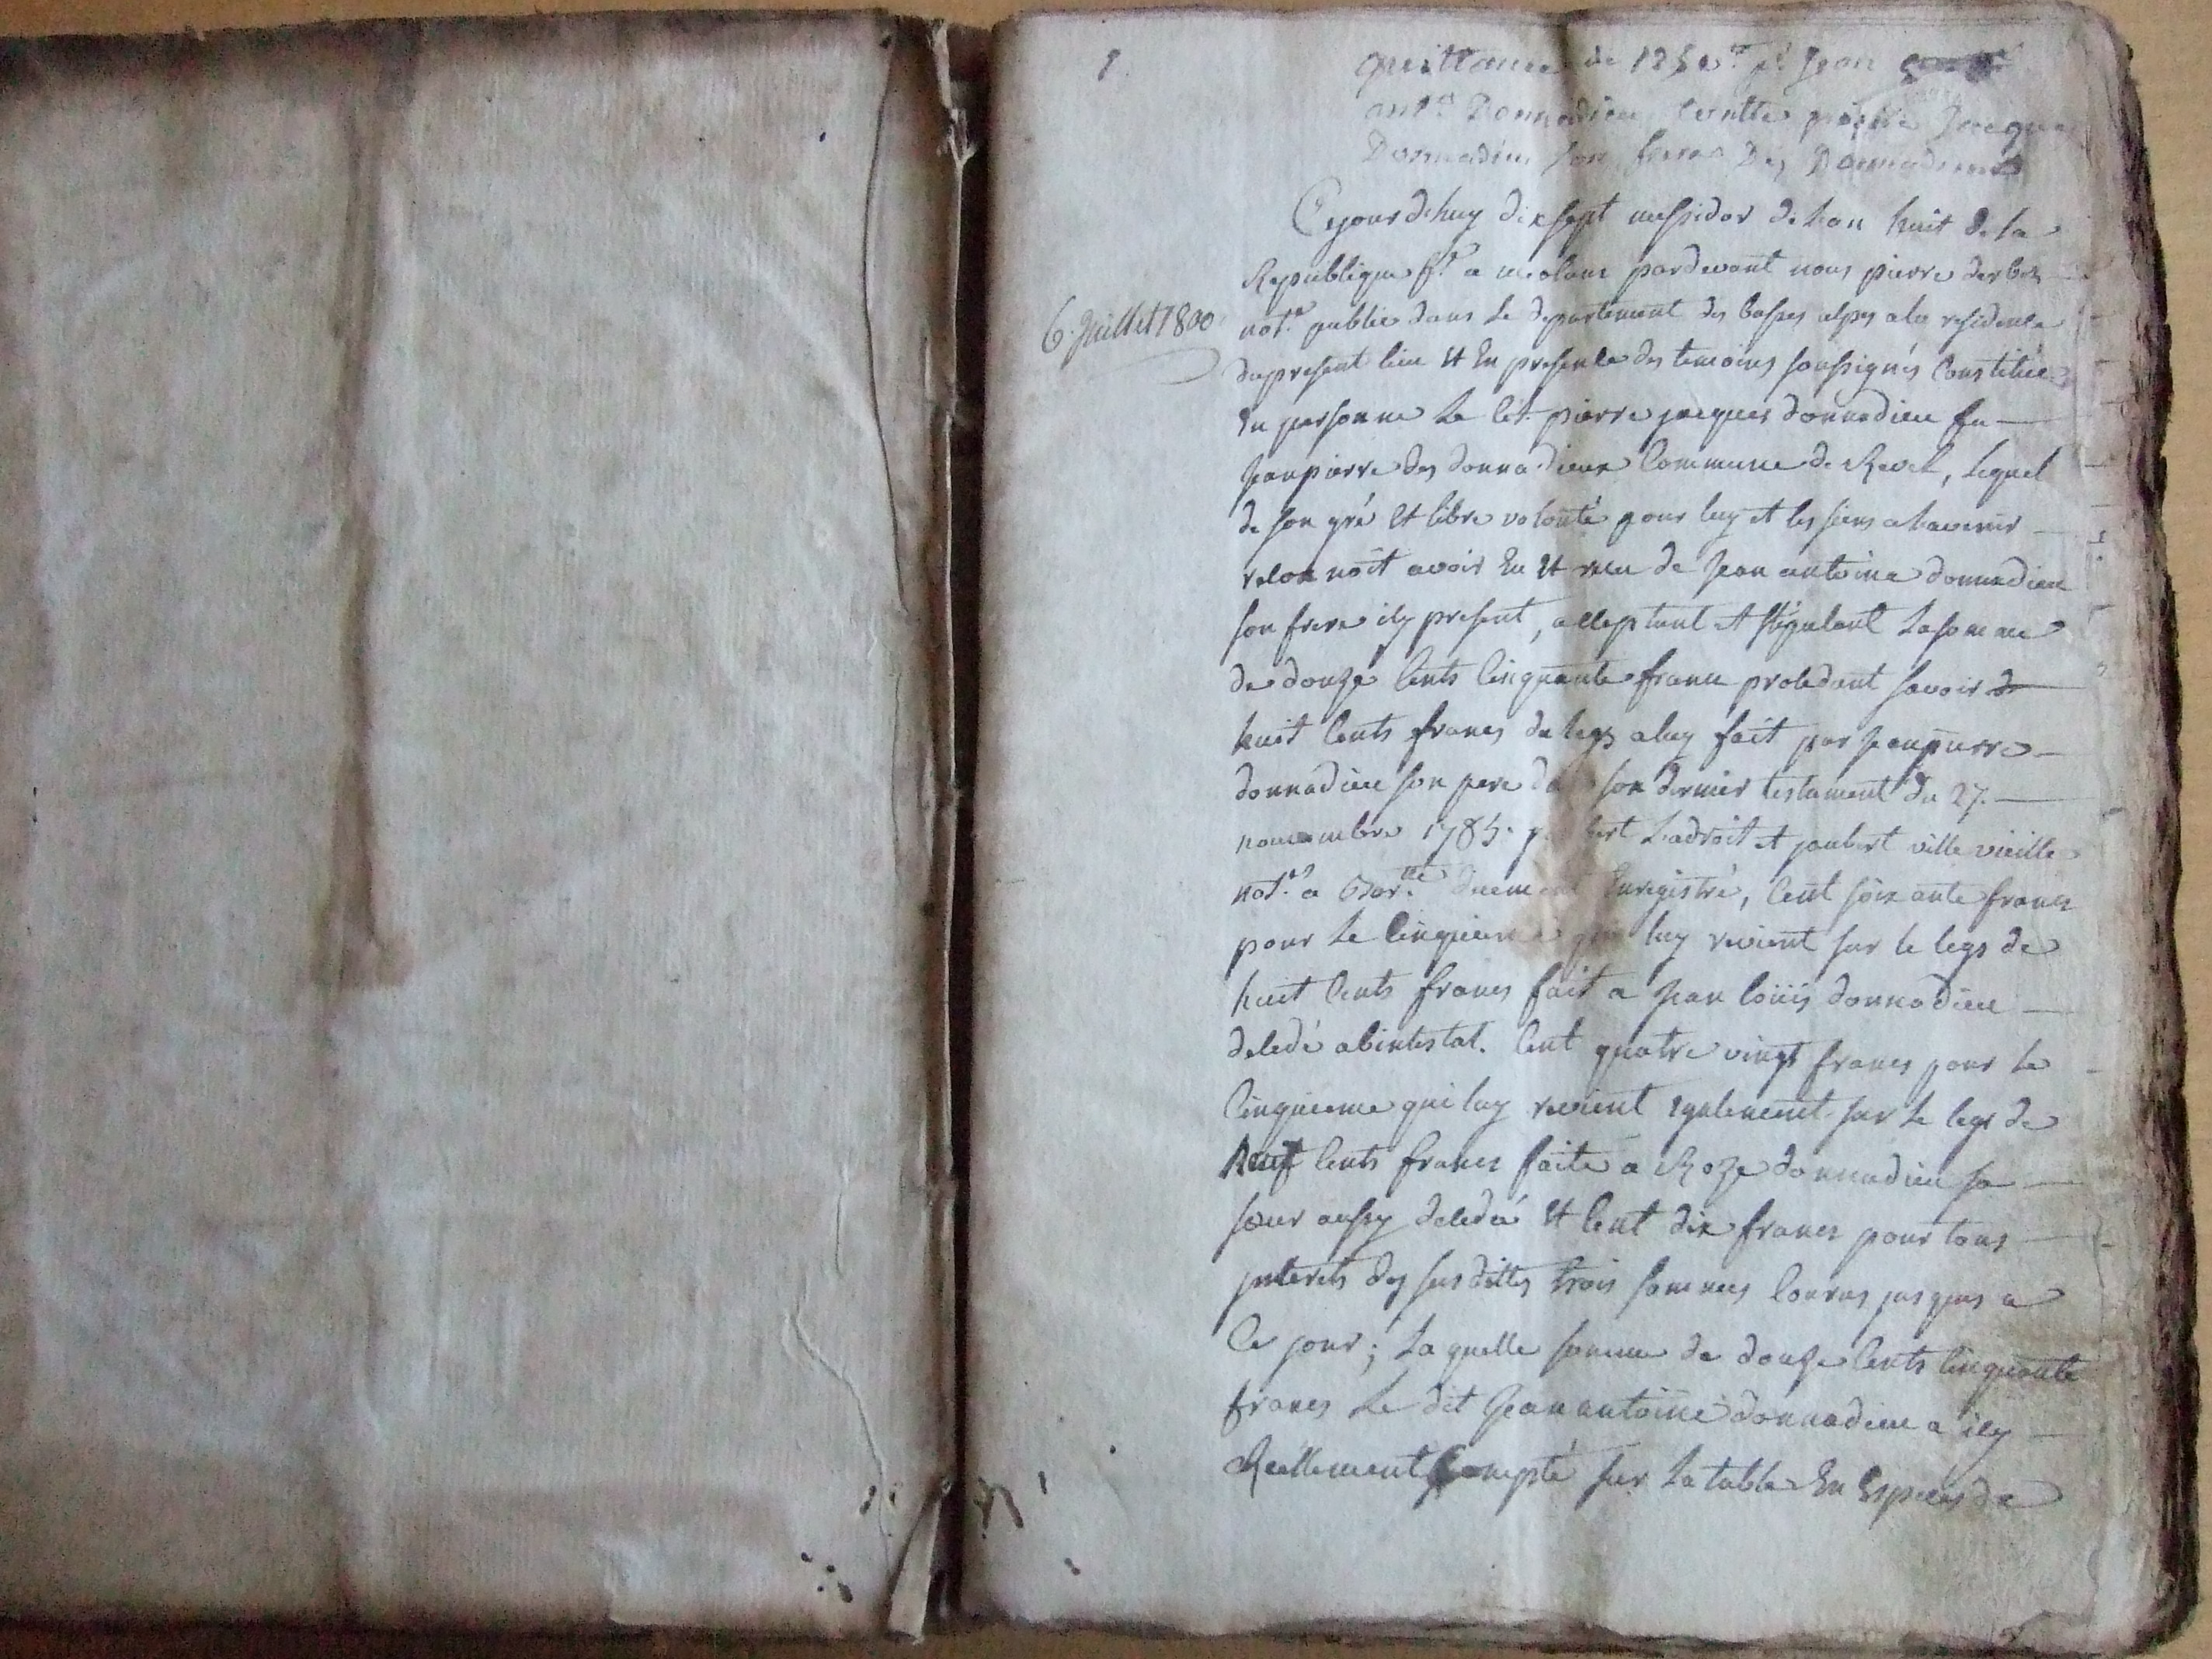 1
quittance de 1250 pr Jean
ant.e Donnadieu contre pierre Jacques
Donnadieu son frere Des Donnadieux
6. Juillet 1800
Cejourdhuy dixsept messidor de lan huit de la
Republique f.se a meolans pardevant nous pierre derbez
not.re public dans le departement des basses alpes ala residence
dupresent lieu et En presence des temoins soussignés Constitué
En personne le cit. pierre jacques donnadieu fu
jeanpierre des donnadieux Commune de Revel, lequel
de son gré et libre volonté pour luy et les siens alavenir
reconnoît avoir Eu et recu de jean antoine donnadieu
son frere icy present, acceptant et stipulant la somme
de douze cents cinquante francs procedant savoir de
huit cents francs du legs aluy fait par jeanpierre
donnadieu son pere da son dernier testament du 27.
novembre 1785. Ladroit et jaubert ville vieille
not.res a Bar.tte duement Enregistré, cent soixante francs
pour le cinquieme qui luy revient sur le legs de
huit cents francs fait a jean loüis donnadieu
decedé abintestat. Cent quatre vingt francs pour le
Cinquieme qui luy revient egalement sur le legs de
Neuf cents francs faite a Roze donnadieu sa
soeur aussy decedée et cent dix francs pour tous
jnterets des sus dittes trois sommes courus jusques a
Ce jour; la quelle somme de douze cents cinquante
francs le dit Jean antoine donnadieu a icy
Reellement Compté sur la table En Especes de